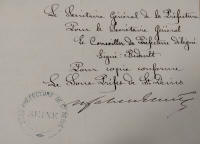 Le Secrétaire Général de la Préfecture
Pour le Secrétaire Général
Le Conseiller de Préfecture délégué
Signé
Pour copie conforme
Le Sous-Préfet de St Denis
SEINE